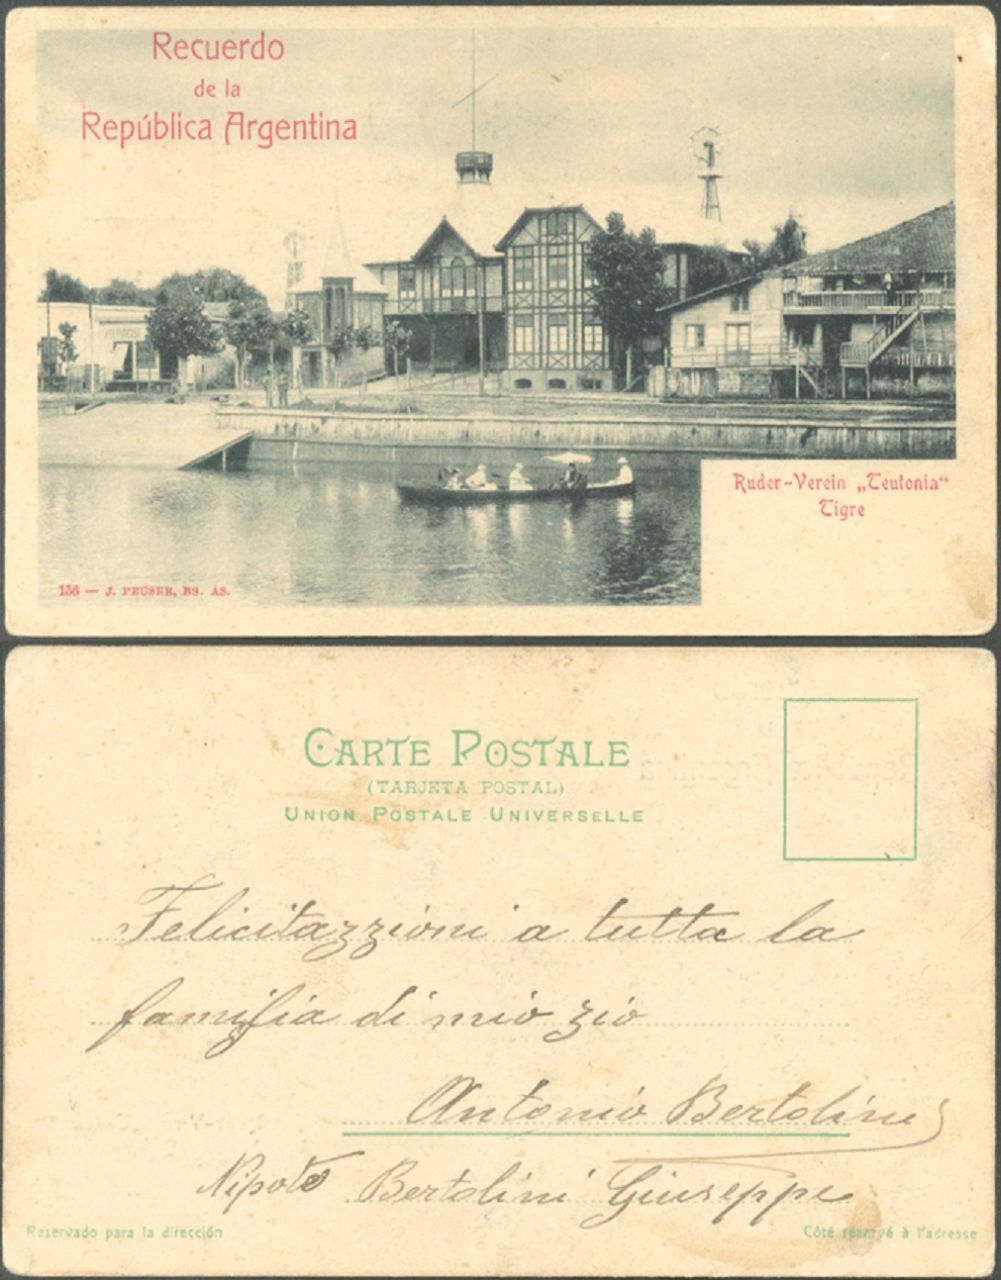 Recuerdo
de la
República Argentina
Ruder-Verein „Teutonia“
Tigre
156 — J. PEUSER, BS. AS.
CARTE POSTALE
(TARJETA POSTAL)
UNION POSTALE UNIVERSELLE
Felicitazzioni a tutta la
familia di mio zio
Antonio Bertolini
Nipote Bertolini Giuseppe
Reservado para la dirección
Côté réservé à l'adresse